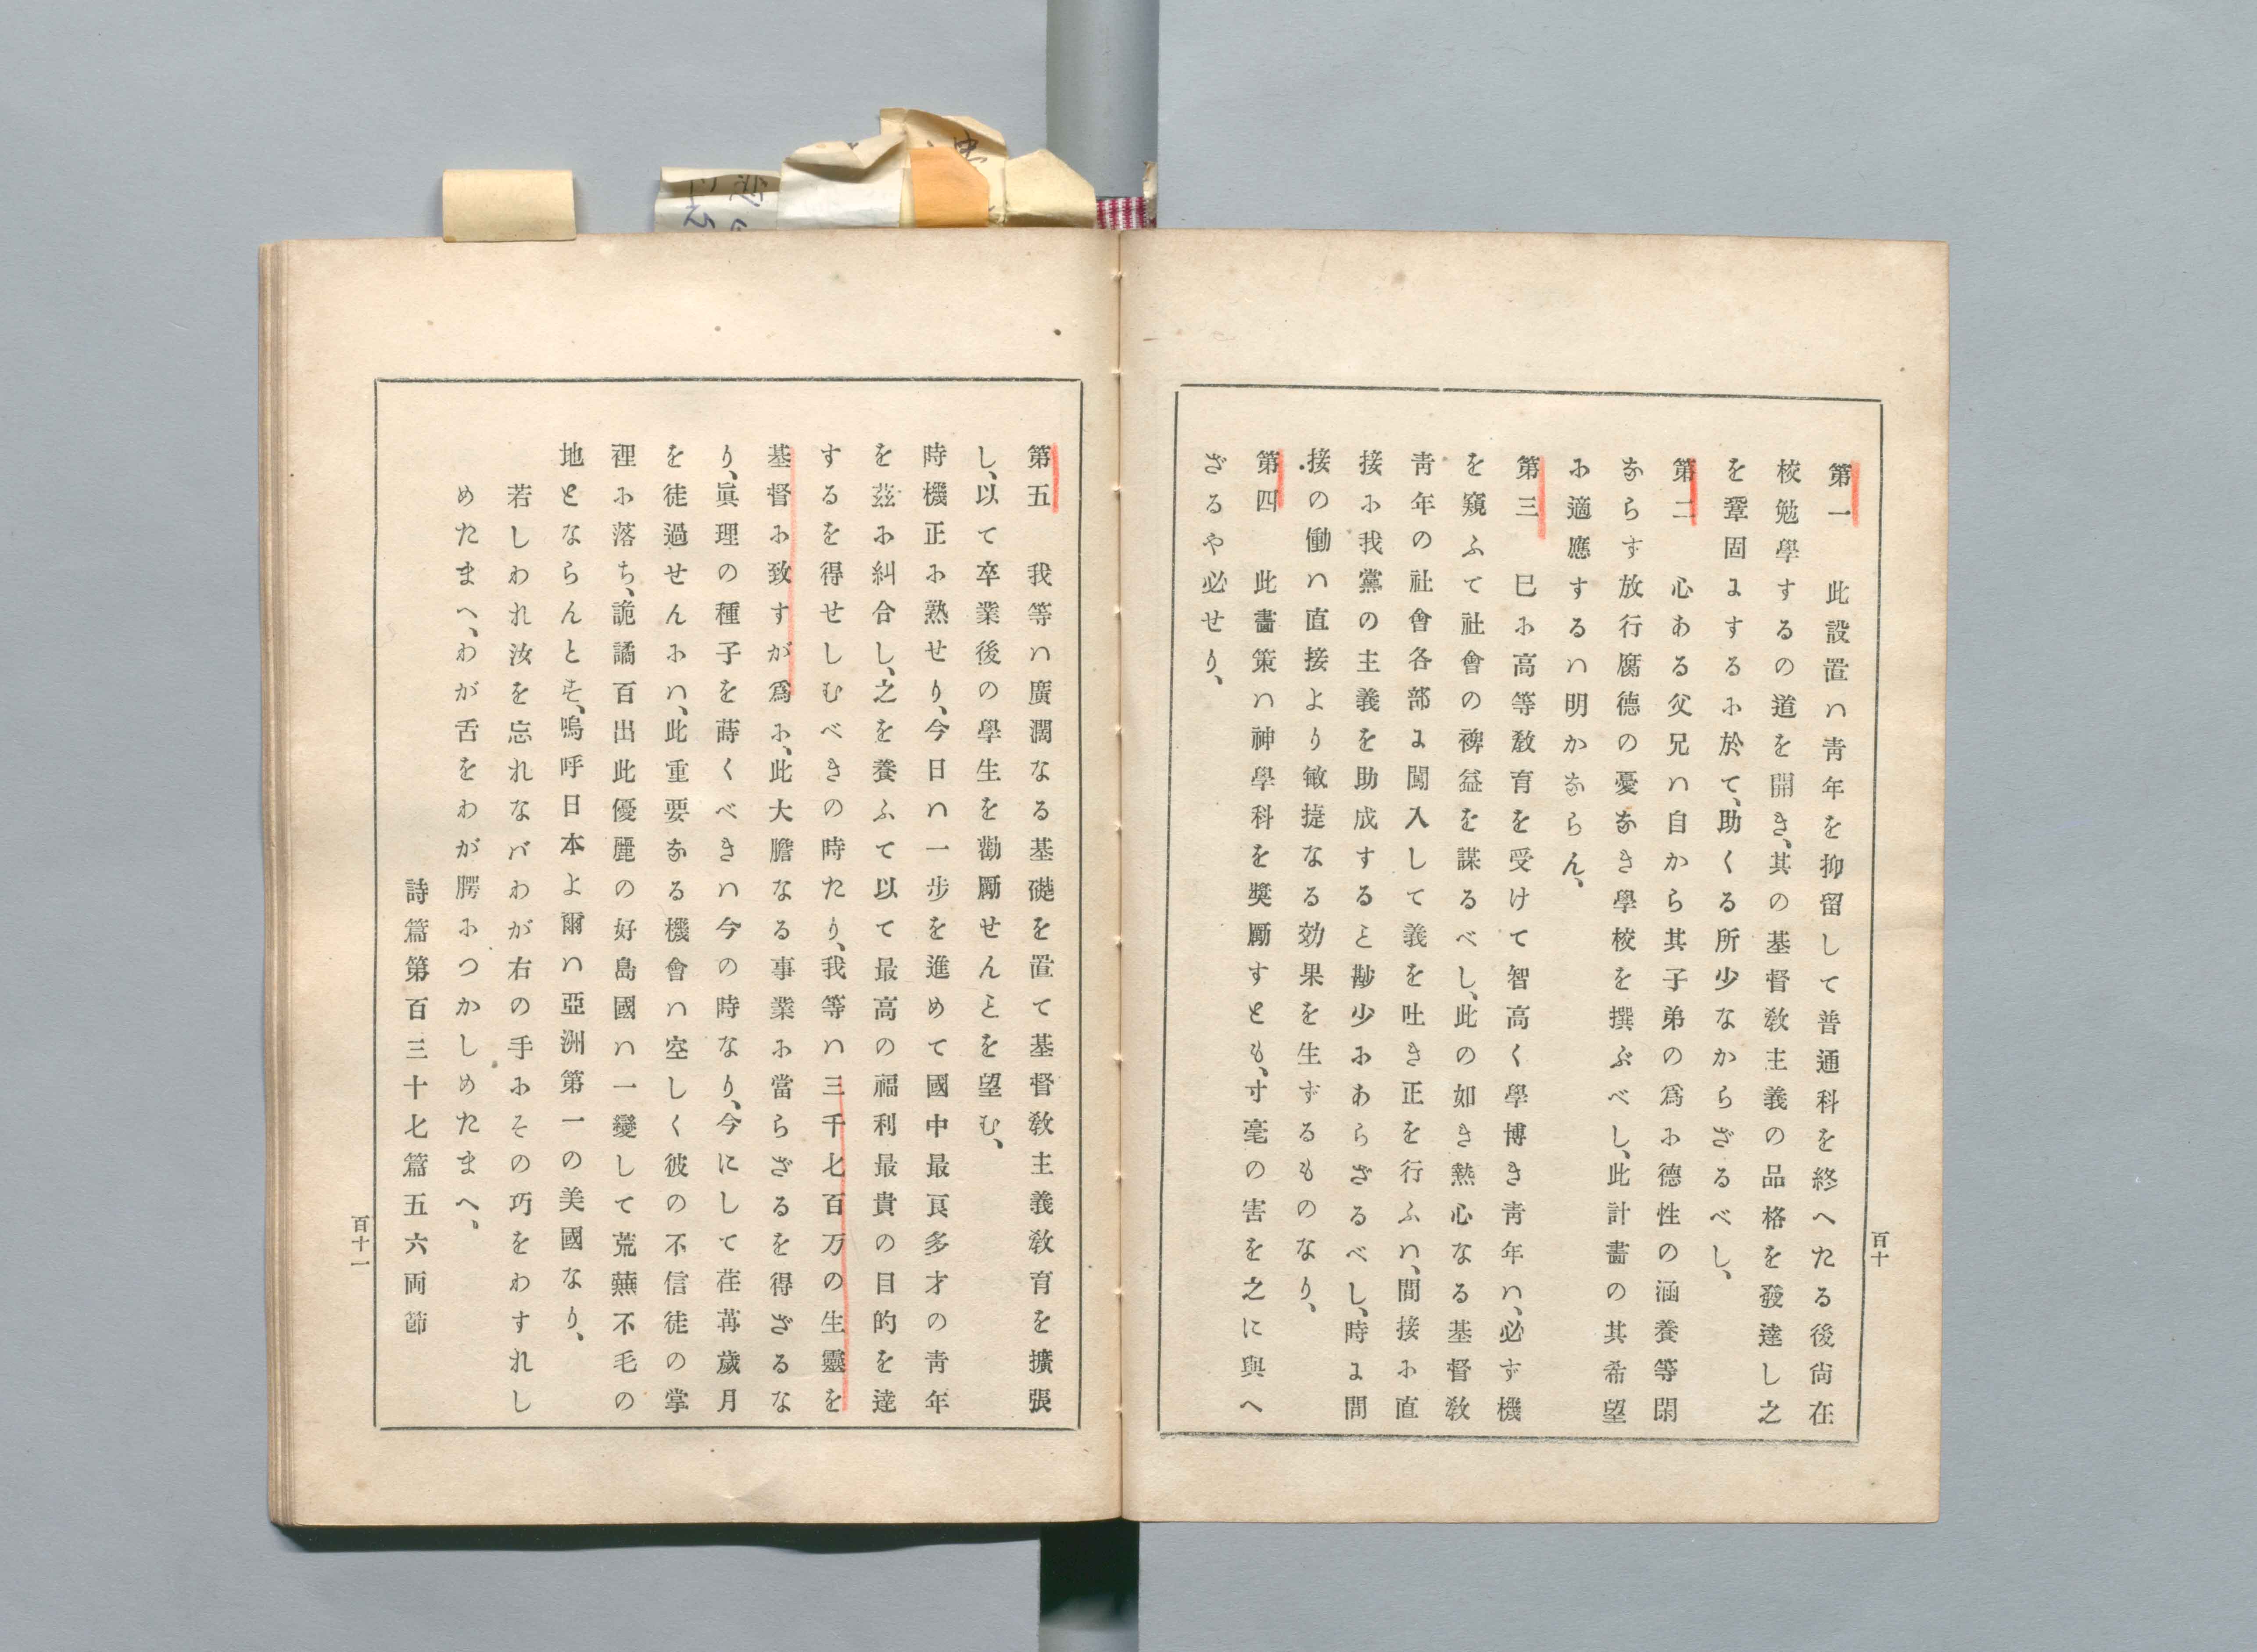 第一　此設置ハ靑年を抑留して普通科を終へたる後尙在
校勉學するの道を開き、其の基督敎主義の品格を發達し之
を鞏固にするに於て、助くる所少なからざるべし、
第二　心ある父兄ハ自から其子弟の爲に德性の涵養等閑
ならず放行腐德の憂なき學校を撰ぶべし、此計畵の其希望
に適應するハ明かならん、
第三　已に高等敎育を受けて智高く學博き靑年ハ、必ず機
を窺ふて社會の裨益を謀るべし、此の如き熱心なる基督敎
靑年の社會各部に闖入して義を吐き正を行ふハ、間接に直
接に我黨の主義を助成するヿ尠少にあらざるべし、時に間
接の働ハ直接より敏捷なる効果を生ずるものなり、
第四　此畵策ハ神學科を奬勵すとも、寸毫の害を之に與へ
ざるや必せり、
百十
第五　我等ハ廣濶なる基礎を置て基督敎主義敎育を擴張
し、以て卒業後の學生を勸勵せんヿを望む、
時機正に熟せり、今日ハ一步を進めて國中最良多才の靑年
を茲に糾合し、之を養ふて以て最高の福利最貴の目的を達
するを得せしむべきの時たり、我等ハ三千七百万の生靈を
基督に致すが爲に、此大膽なる事業に當らざるを得ざるな
り、眞理の種子を蒔くべきハ今の時なり、今にして荏苒歲月
を徒過せんにハ、此重要なる機會ハ空しく彼の不信徒の掌
裡に落ち、詭譎百出此優麗の好島國ハ一變して荒蕪不毛の
地とならんとす、嗚呼日本よ爾ハ亞洲第一の美國なり、
若しわれ汝を忘れなバわが右の手にその巧をわすれし
めたまへ、わが舌をわが腭につかしめたまへ、
詩篇第百三十七篇五六両節
百十一